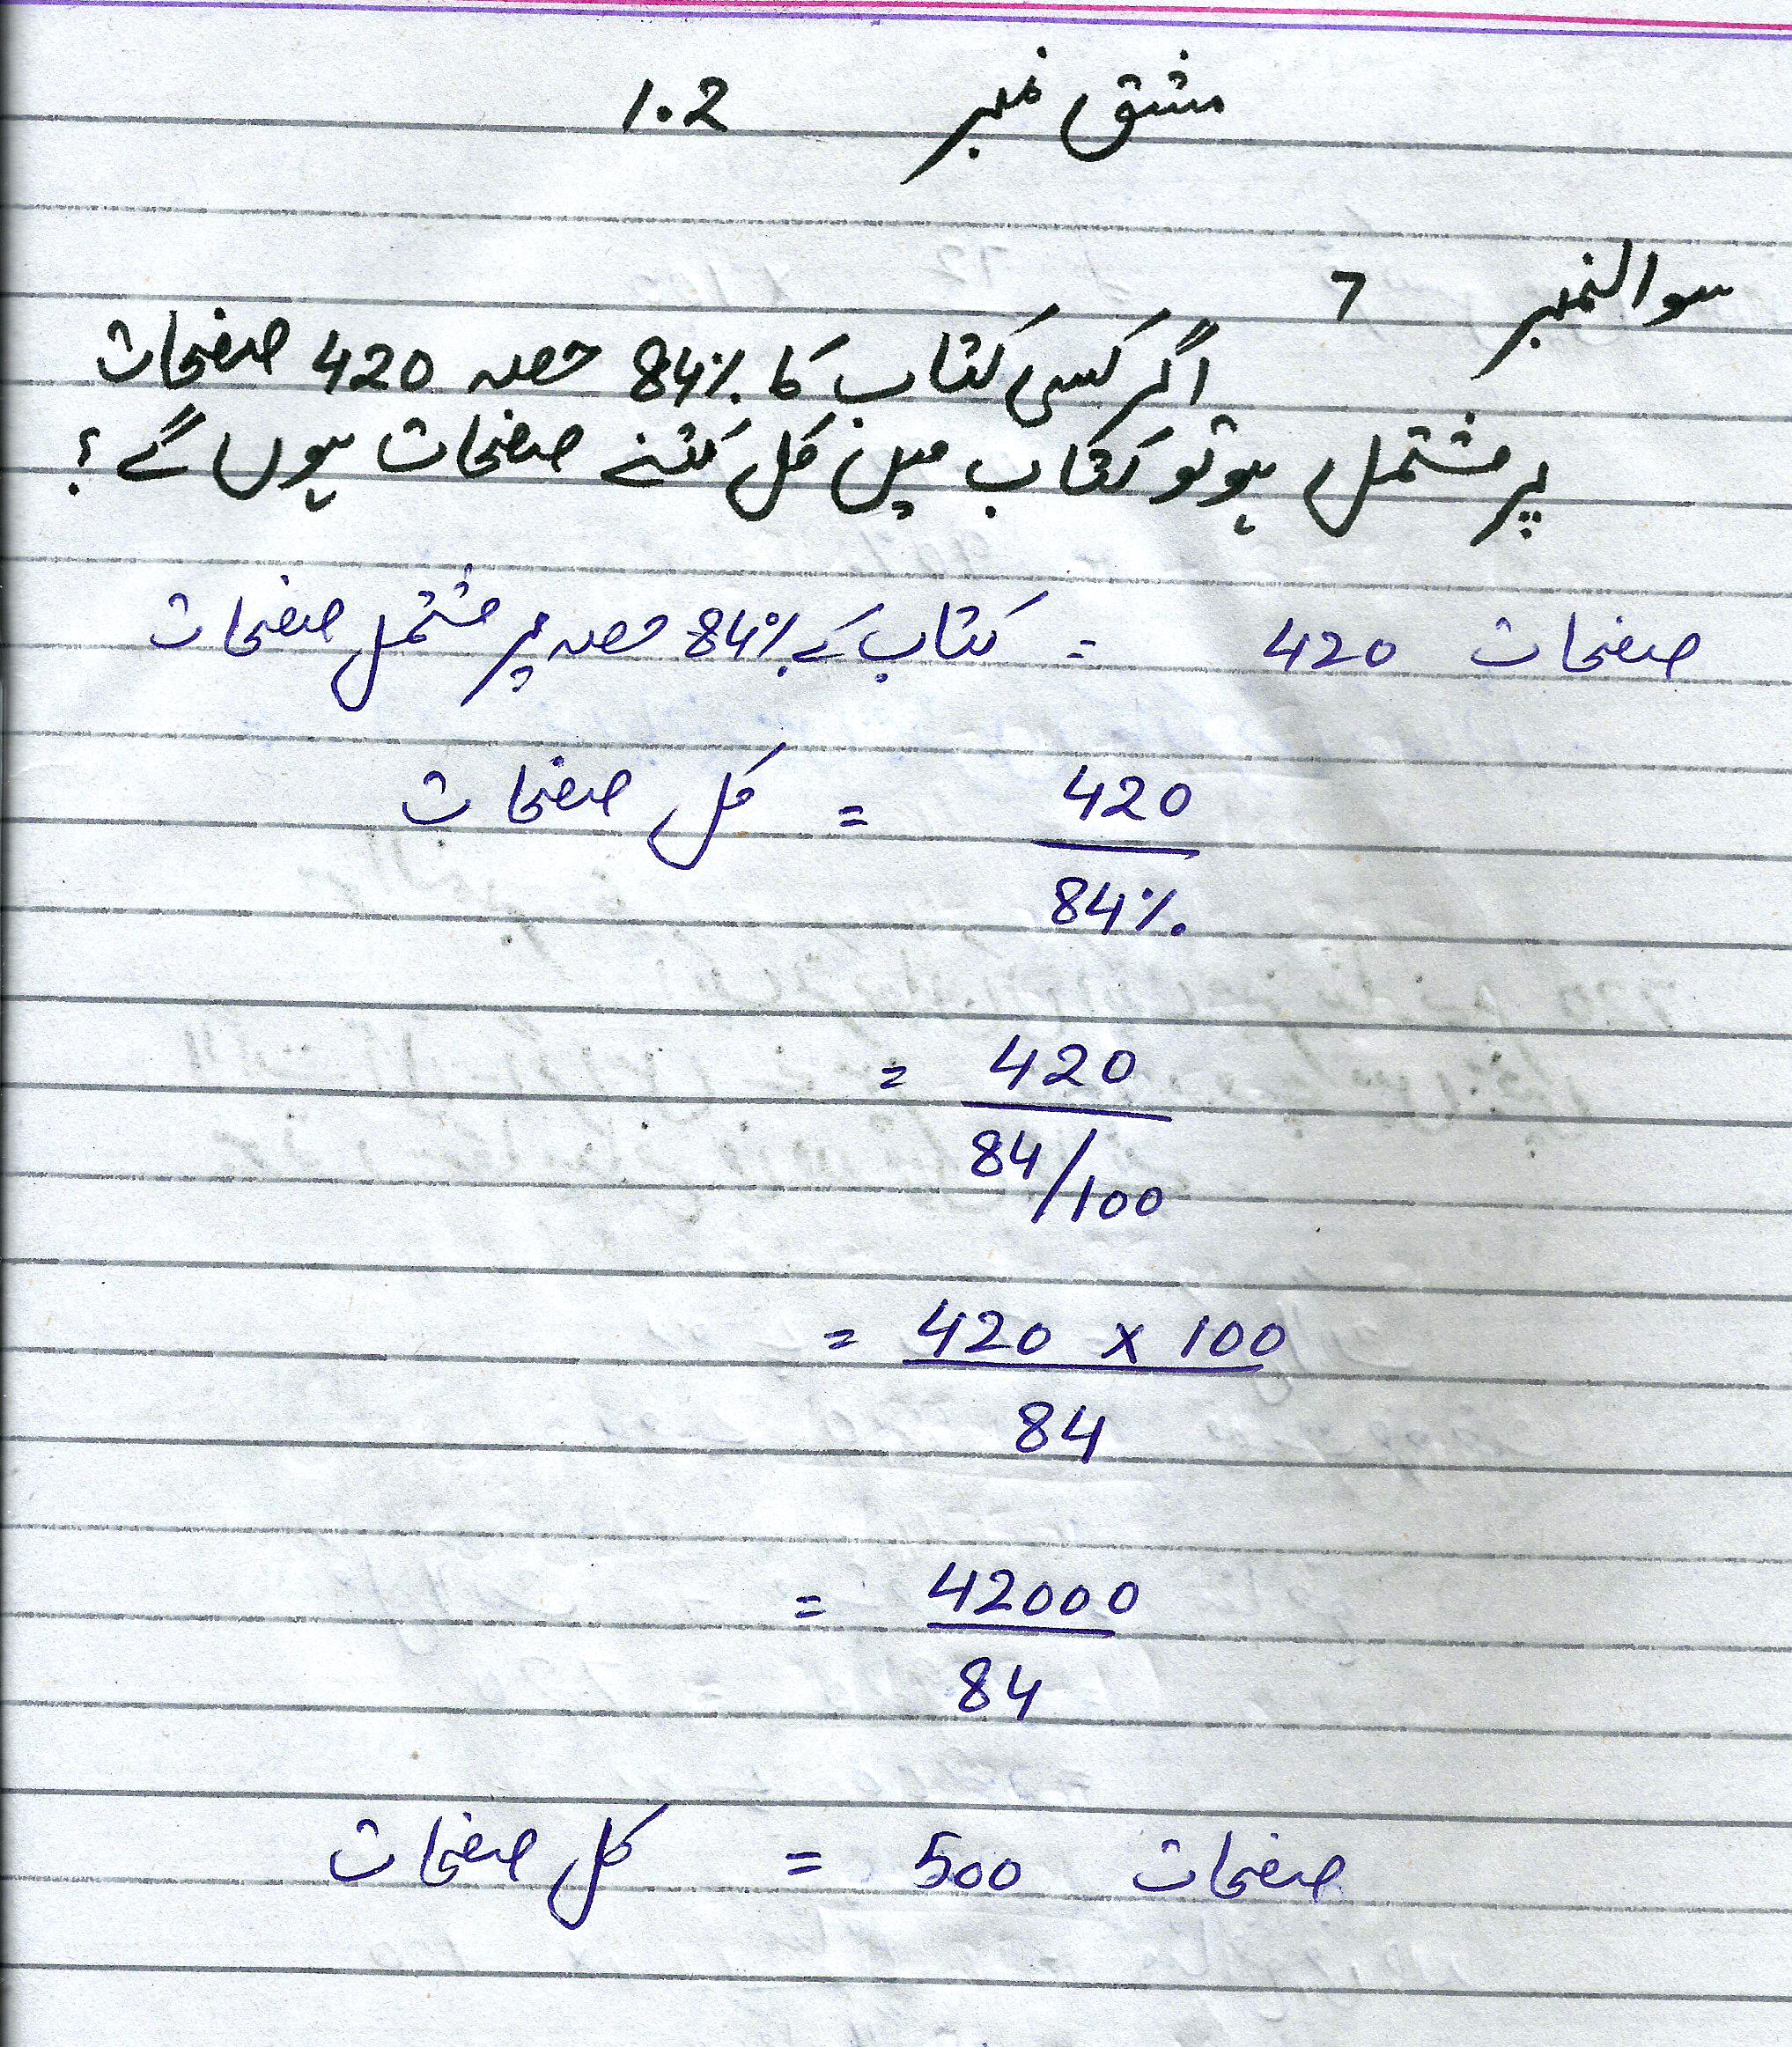 مشق نمبر 1.2
سوالنمبر 7
اگر کسی کتاب کا 84% حصہ 420 صفحات
پر مشتمل ہو تو کتاب میں کل کتنے صفحات ہوں گے؟
کتاب کے 84% حصہ پر مشتمل صفحات = 420 صفحات
کل صفحات = 420
84%
= 420
84/100
= 420 x 100
84
= 42000
84
کل صفحات = 500 صفحات